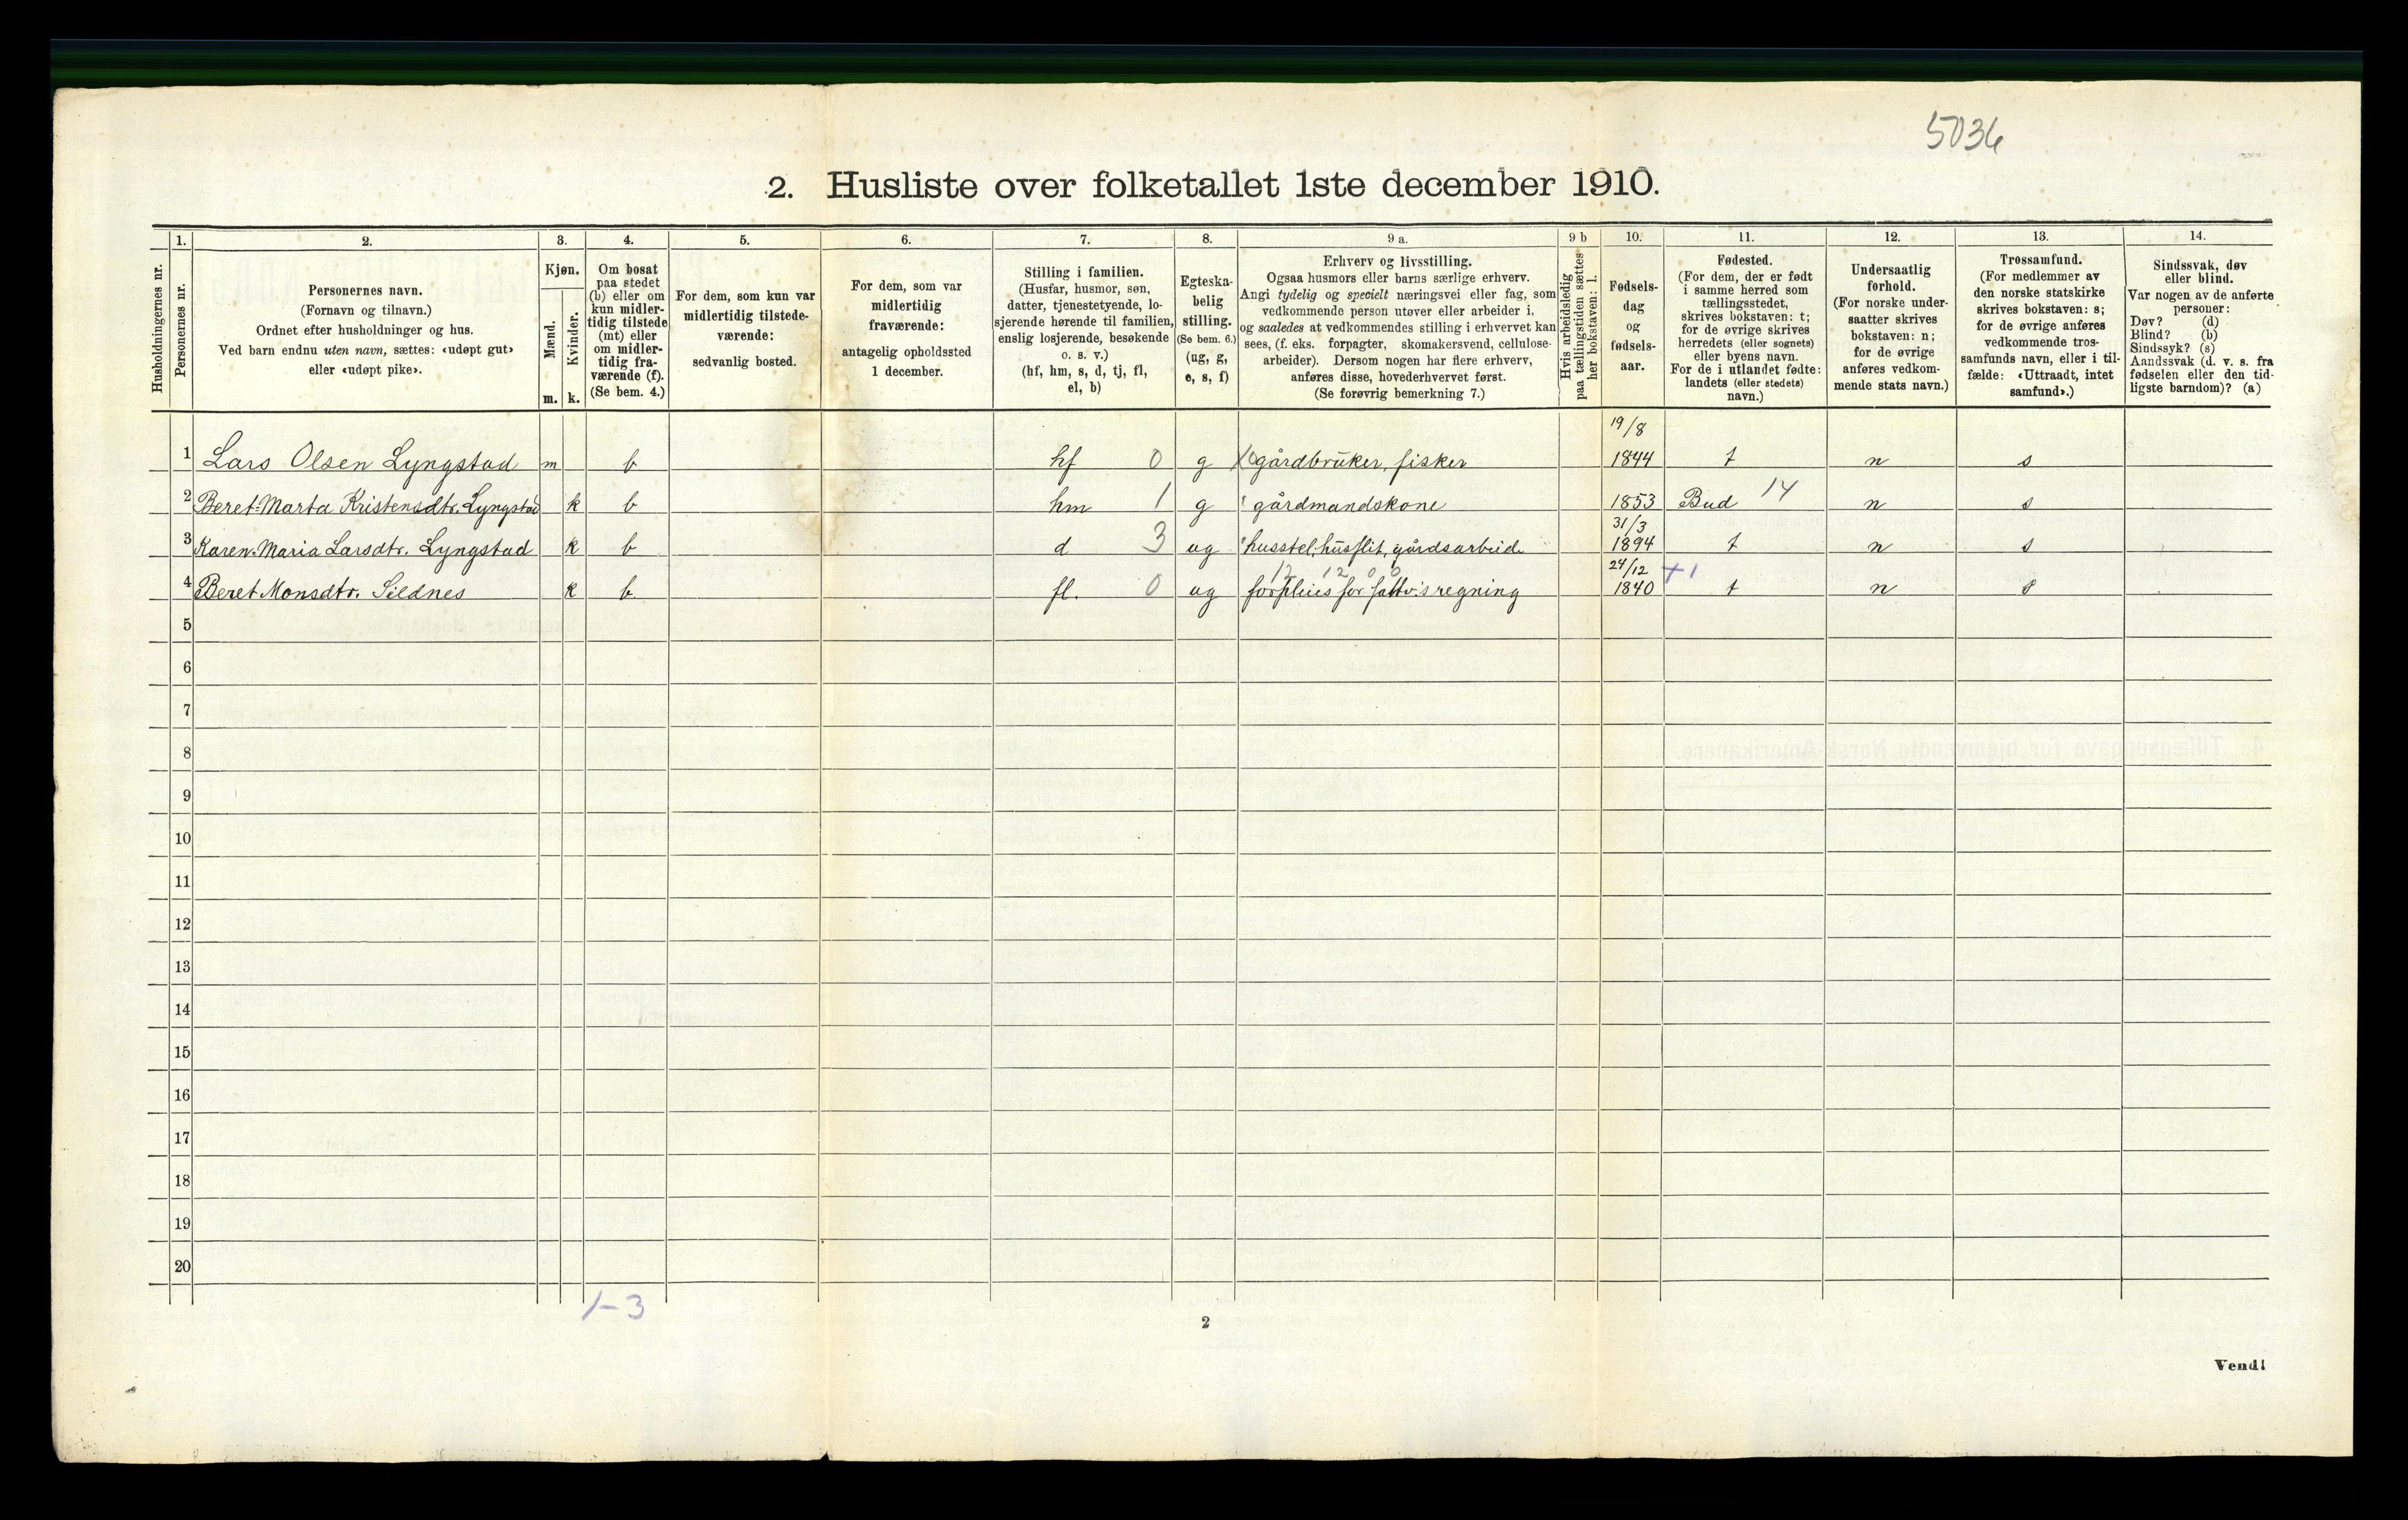 5036
2. Husliste over folketallet 1ste december 1910.
Husholdningernes nr.
1. Personernes nr.
2. Personernes navn.
(Fornavn og tilnavn.)
Ordnet efter husholdninger og hus.
Ved barn endnu uten navn, sættes: «udøpt gut»
eller «udøpt pike».
3. Kjøn.
Mænd. Kvinder.
m. k.
4. Om bosat
paa stedet
(b) eller om
kun midler-
tidig tilstede
(mt) eller
om midler-
tidig fra-
værende (f).
(Se bem. 4.)
5. For dem, som kun var
midlertidig tilstede-
værende:
sedvanlig bosted.
6. For dem, som var
midlertidig
fraværende:
antagelig opholdssted
1 december.
7. Stilling i familien.
(Husfar, husmor, søn,
datter, tjenestetyende, lo-
sjerende hørende til familien,
enslig losjerende, besøkende
o. s. v.)
(hf, hm, s, d, tj, fl,
el, b)
8. Egteska-
belig
stilling.
(Se bem. 6.)
(ug, g,
e, s, f)
9 a. Erhverv og livsstilling.
Ogsaa husmors eller barns særlige erhverv.
Angi tydelig og specielt næringsvei eller fag, som
vedkommende person utøver eller arbeider i,
og saaledes at vedkommendes stilling i erhvervet kan
sees, (f. eks. forpagter, skomakersvend, cellulose-
arbeider). Dersom nogen har flere erhverv,
anføres disse, hovederhvervet først.
(Se forøvrig bemerkning 7.)
9 b Hvis arbeidsledig
paa tællingstiden sættes
her bokstaven: l.
10. Fødsels-
dag
og
fødsels-
aar.
11. Fødested.
(For dem, der er født
i samme herred som
tællingsstedet,
skrives bokstaven: t;
for de øvrige skrives
herredets (eller sognets)
eller byens navn.
For de i utlandet fødte:
landets (eller stedets)
navn.)
12. Undersaatlig
forhold.
(For norske under-
saatter skrives
bokstaven: n;
for de øvrige
anføres vedkom-
mende stats navn.)
13. Trossamfund.
(For medlemmer av
den norske statskirke
skrives bokstaven: s;
for de øvrige anføres
vedkommende tros-
samfunds navn, eller i til-
fælde: «Uttraadt, intet
samfund».)
14. Sindssvak, døv
eller blind.
Var nogen av de anførte
personer:
Døv? (d)
Blind? (b)
Sindssyk? (s)
Aandssvak (d. v. s. fra
fødselen eller den tid-
ligste barndom)? (a)
1 Lars Olsen Lyngstad m b hf 0 g gårdbruker, fisker 19/8 1844 t n s
2 Beret-Marta Kristensdtr. Lyngstad k b hm 1 g gårdmandskone 1853 Bud 14 n s
3 Karen-Maria Larsdtr. Lyngstad k b d 3 ug husstel, husflit, gårdsarbeide 31/3 1894 t n s
12 12 0 0
4 Beret Monsdtr. Sildnes k b fl. 0 ug forpleies for fattv.'s regning 24/12 1840 +1 t n s
5
6
7
8
9
10
11
12
13
14
15
16
17
18
19
20
1-3
2
Vend!